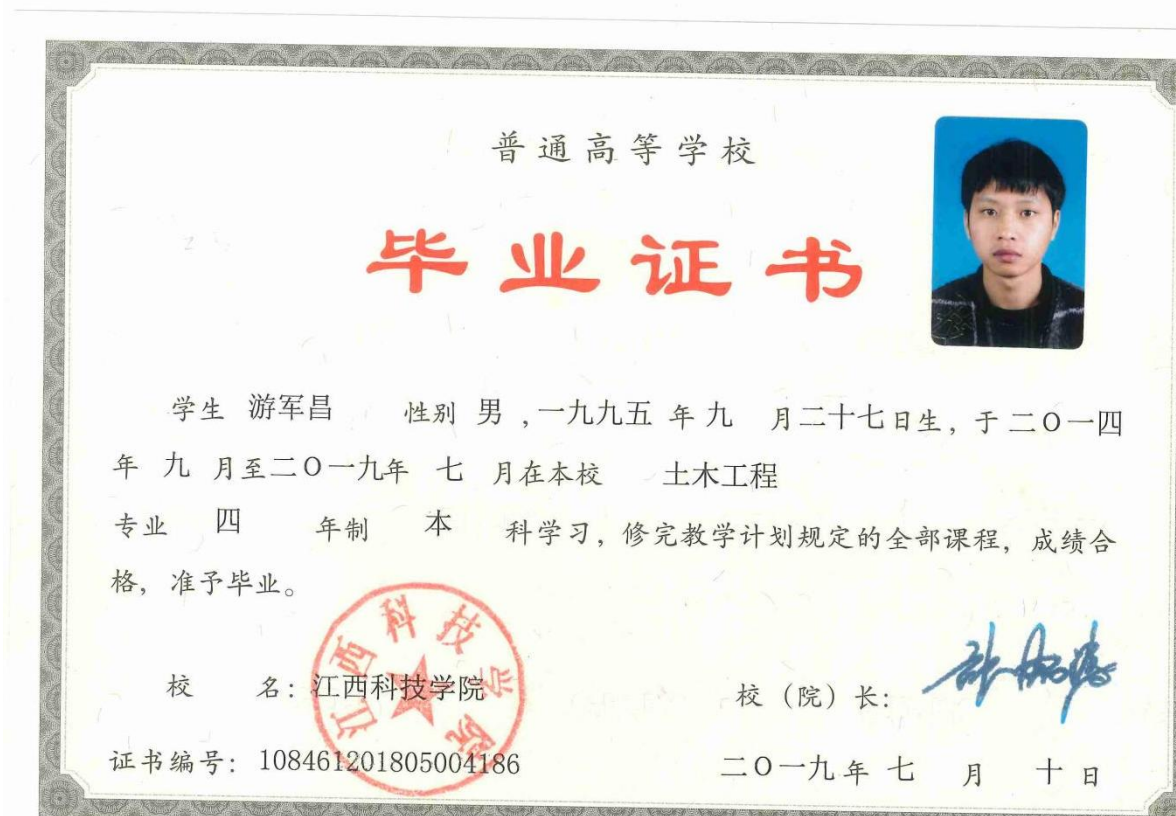 普通高等学校
毕业证书
学生 游军昌 性别 男 ,一九九五 年 九 月二十七日生，于二〇一四
年 九 月至二〇一九年 七 月在本校 土木工程
专业 四 年制 本 科学习，修完教学计划规定的全部课程，成绩合
格，准予毕业。
江西科技学院
校 名：江西科技学院 校（院）长：
证书编号：108461201805004186 二〇一九年 七 月 十 日